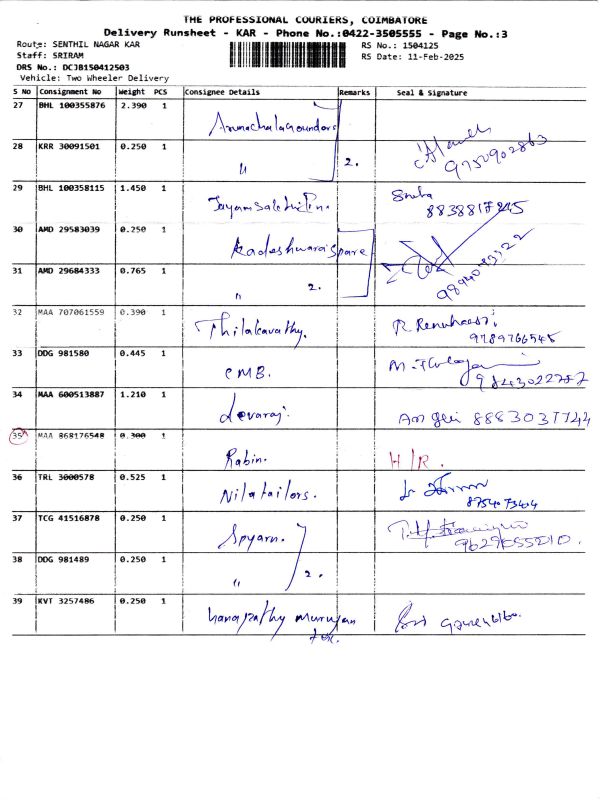 THE PROFESSIONAL COURIERS, COIMBATORE
Delivery Runsheet - KAR - Phone No.:0422-3505555 - Page No.:3
Route: SENTHIL NAGAR KAR RS No.: 1504125
Staff: SRIRAM RS Date: 11-Feb-2025
DRS No.: DCJB150412503
Vehicle: Two Wheeler Delivery
S No Consignment No Weight PCS Consignee Details Remarks Seal & Signature
27 BHL 100355876 2.390 1 Arunachalagounders
28 KRR 30091501 0.250 1 " 2. 9750902863
29 BHL 100358115 1.450 1 Sneha
8838817845
30 AMD 29583039 0.250 1 Kadeshwarai Spare
31 AMD 29684333 0.765 1 " 2.
32 MAA 707061559 0.390 1 Thilakavathy. R.
9789766545
33 DDG 981580 0.445 1 CMB. M.
9843022787
34 MAA 600513887 1.210 1 Devaraj. 8883031744
35 MAA 868176548 0.300 1 Rabin. H/R.
36 TRL 3000578 0.525 1 Nila tailors.
8754073404
37 TCG 41516878 0.250 1 Spyarn.
38 DDG 981489 0.250 1 " 2.
39 KVT 3257486 0.250 1 Murugan
tex.